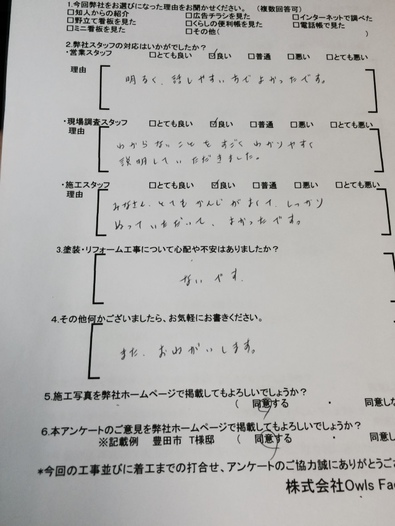 1.今回弊社をお選びになった理由をお聞かせください。(複数回答可)
□知人からの紹介 □広告チラシを見た □インターネットで調べた
□野立て看板を見た □くらしの便利帳を見た □電話帳で見た
□ミニ看板を見た □その他(
2.弊社スタッフの対応はいかがでしたか?
・営業スタッフ □とても良い ☑良い □普通 □悪い □とても悪い
理由
明るく、話しやすい方でよかったです。
・現場調査スタッフ □とても良い ☑良い □普通 □悪い □とても悪い
理由
わからないことをすごくわかりやすく
説明していただきました。
・施工スタッフ □とても良い ☑良い □普通 □悪い □とても悪い
理由
みなさん、とてもかんじがよくて、しっかり
ぬっていただいて、よかったです。
3.塗装・リフォーム工事について心配や不安はありましたか?
ないです.
4.その他何かございましたら、お気軽にお書きください。
また、おねがいします。
5.施工写真を弊社ホームページで掲載してもよろしいでしょうか?
( 同意する ・ 同意し
6.本アンケートのご意見を弊社ホームページで掲載してもよろしいでしょうか?
※記載例 豊田市 T様邸 ( 同意する ・ 同意し
*今回の工事並びに着工までの打合せ、アンケートのご協力誠にありがとうござ
株式会社Owls Fa